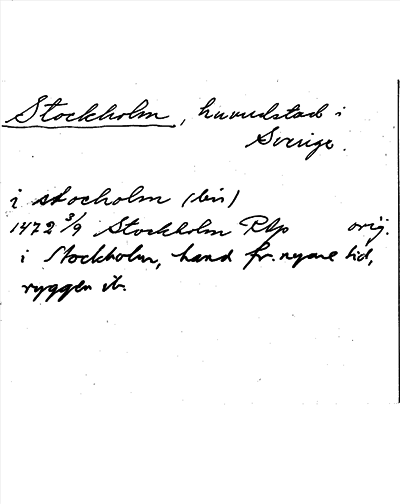 Stockholm, huvudstad i
Sverige.
i stocholm (bis)
1472 3/9 Stockholm RAp orig.
i Stockholm, hand fr. nyare tid,
ryggen ib.